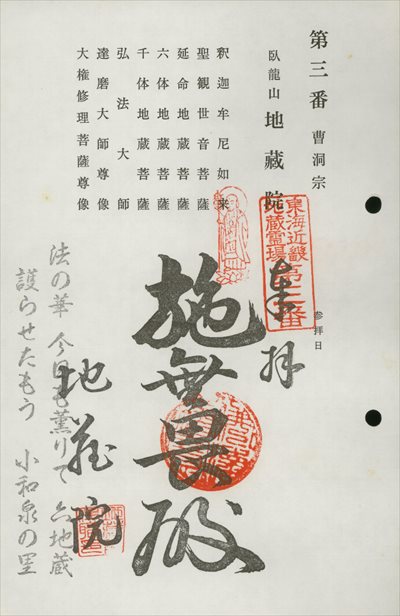 第三番 曹洞宗
臥龍山 地蔵院
釈迦牟尼如来
聖観世音菩薩
延命地蔵菩薩
六体地蔵菩薩
千体地蔵菩薩
弘法大師
達磨大師尊像
大権修理菩薩尊像
参拝日
東海近畿
地蔵霊場
第三番
奉拝
施無畏殿
地蔵院
法の華 今日も薫りて 六地蔵
護らせたもう 小和泉の里